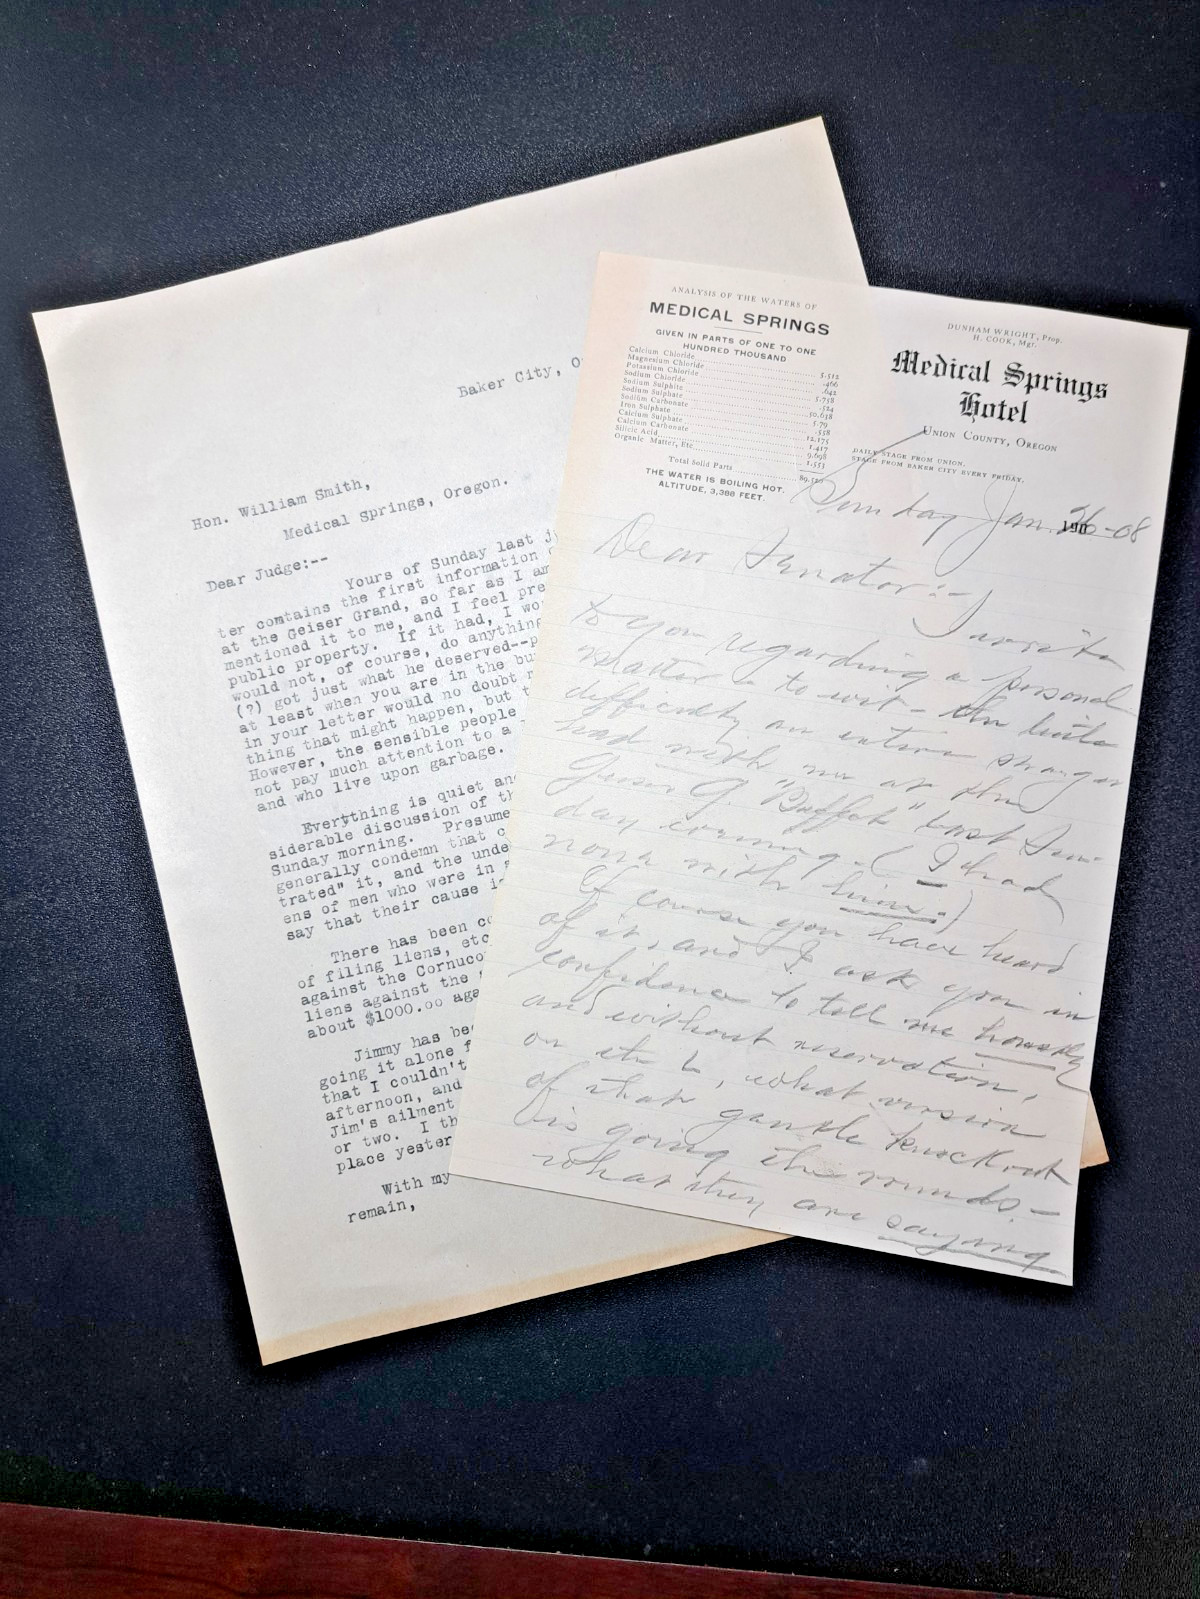 Baker City, O
Hon. William Smith,
Medical Springs, Oregon.
Dear Judge:--
Yours of Sunday last
ter comtains the first information
at the Geiser Grand, so far as I am
mentioned it to me, and I feel pre
public property. If it had, I wo
would not, of course, do anything
(?) got just what he deserved--p
at least when you are in the bu
in your letter would no doubt
thing that might happen, but t
However, the sensible people
not pay much attention to a
and who live upon garbage.
Everything is quiet and
siderable discussion of th
Sunday morning. Presume
generally condemn that c
trated" it, and the unde
ens of men who were in
say that their cause is
There has been co
of filing liens, etc
against the Cornuco
liens against the
about $1000.00 age
Jimmy has bee
going it alone f
that I couldn't
afternoon, and
Jim's ailment
or two. I th
place yester
With my
remain,
ANALYSIS OF THE WATERS OF
MEDICAL SPRINGS
GIVEN IN PARTS OF ONE TO ONE
HUNDRED THOUSAND
Calcium Chloride 5.512
Magnesium Chloride .466
Potassium Chloride .642
Sodium Chloride 5.758
Sodium Sulphite .524
Sodium Sulphate 50.658
Sodium Carbonate 5.79
Iron Sulphate .558
Calcium Sulphate 12.175
Calcium Carbonate 1.417
Silicic Acid 9.698
Organic Matter, Etc. 1.553
Total Solid Parts 89.
THE WATER IS BOILING HOT.
ALTITUDE, 3,388 FEET.
DUNHAM WRIGHT, Prop.
H. COOK, Mgr.
Medical Springs
Hotel
UNION COUNTY, OREGON
DAILY STAGE FROM UNION.
STAGE FROM BAKER CITY EVERY FRIDAY.
Sunday Jan. 26-08
190
Dear Senator:-
I write
to you regarding a personal
matter to wit - the little
difficulty an entire stranger
had with me at the
Geiser G. "Buffet" last Sun-
day evening. (I had
none with him.)
Of course you have heard
of it, and I ask you in
confidence to tell me honestly
and without reservation,
on the L, what version
of that gentle knockout
is going the rounds. -
what they are saying